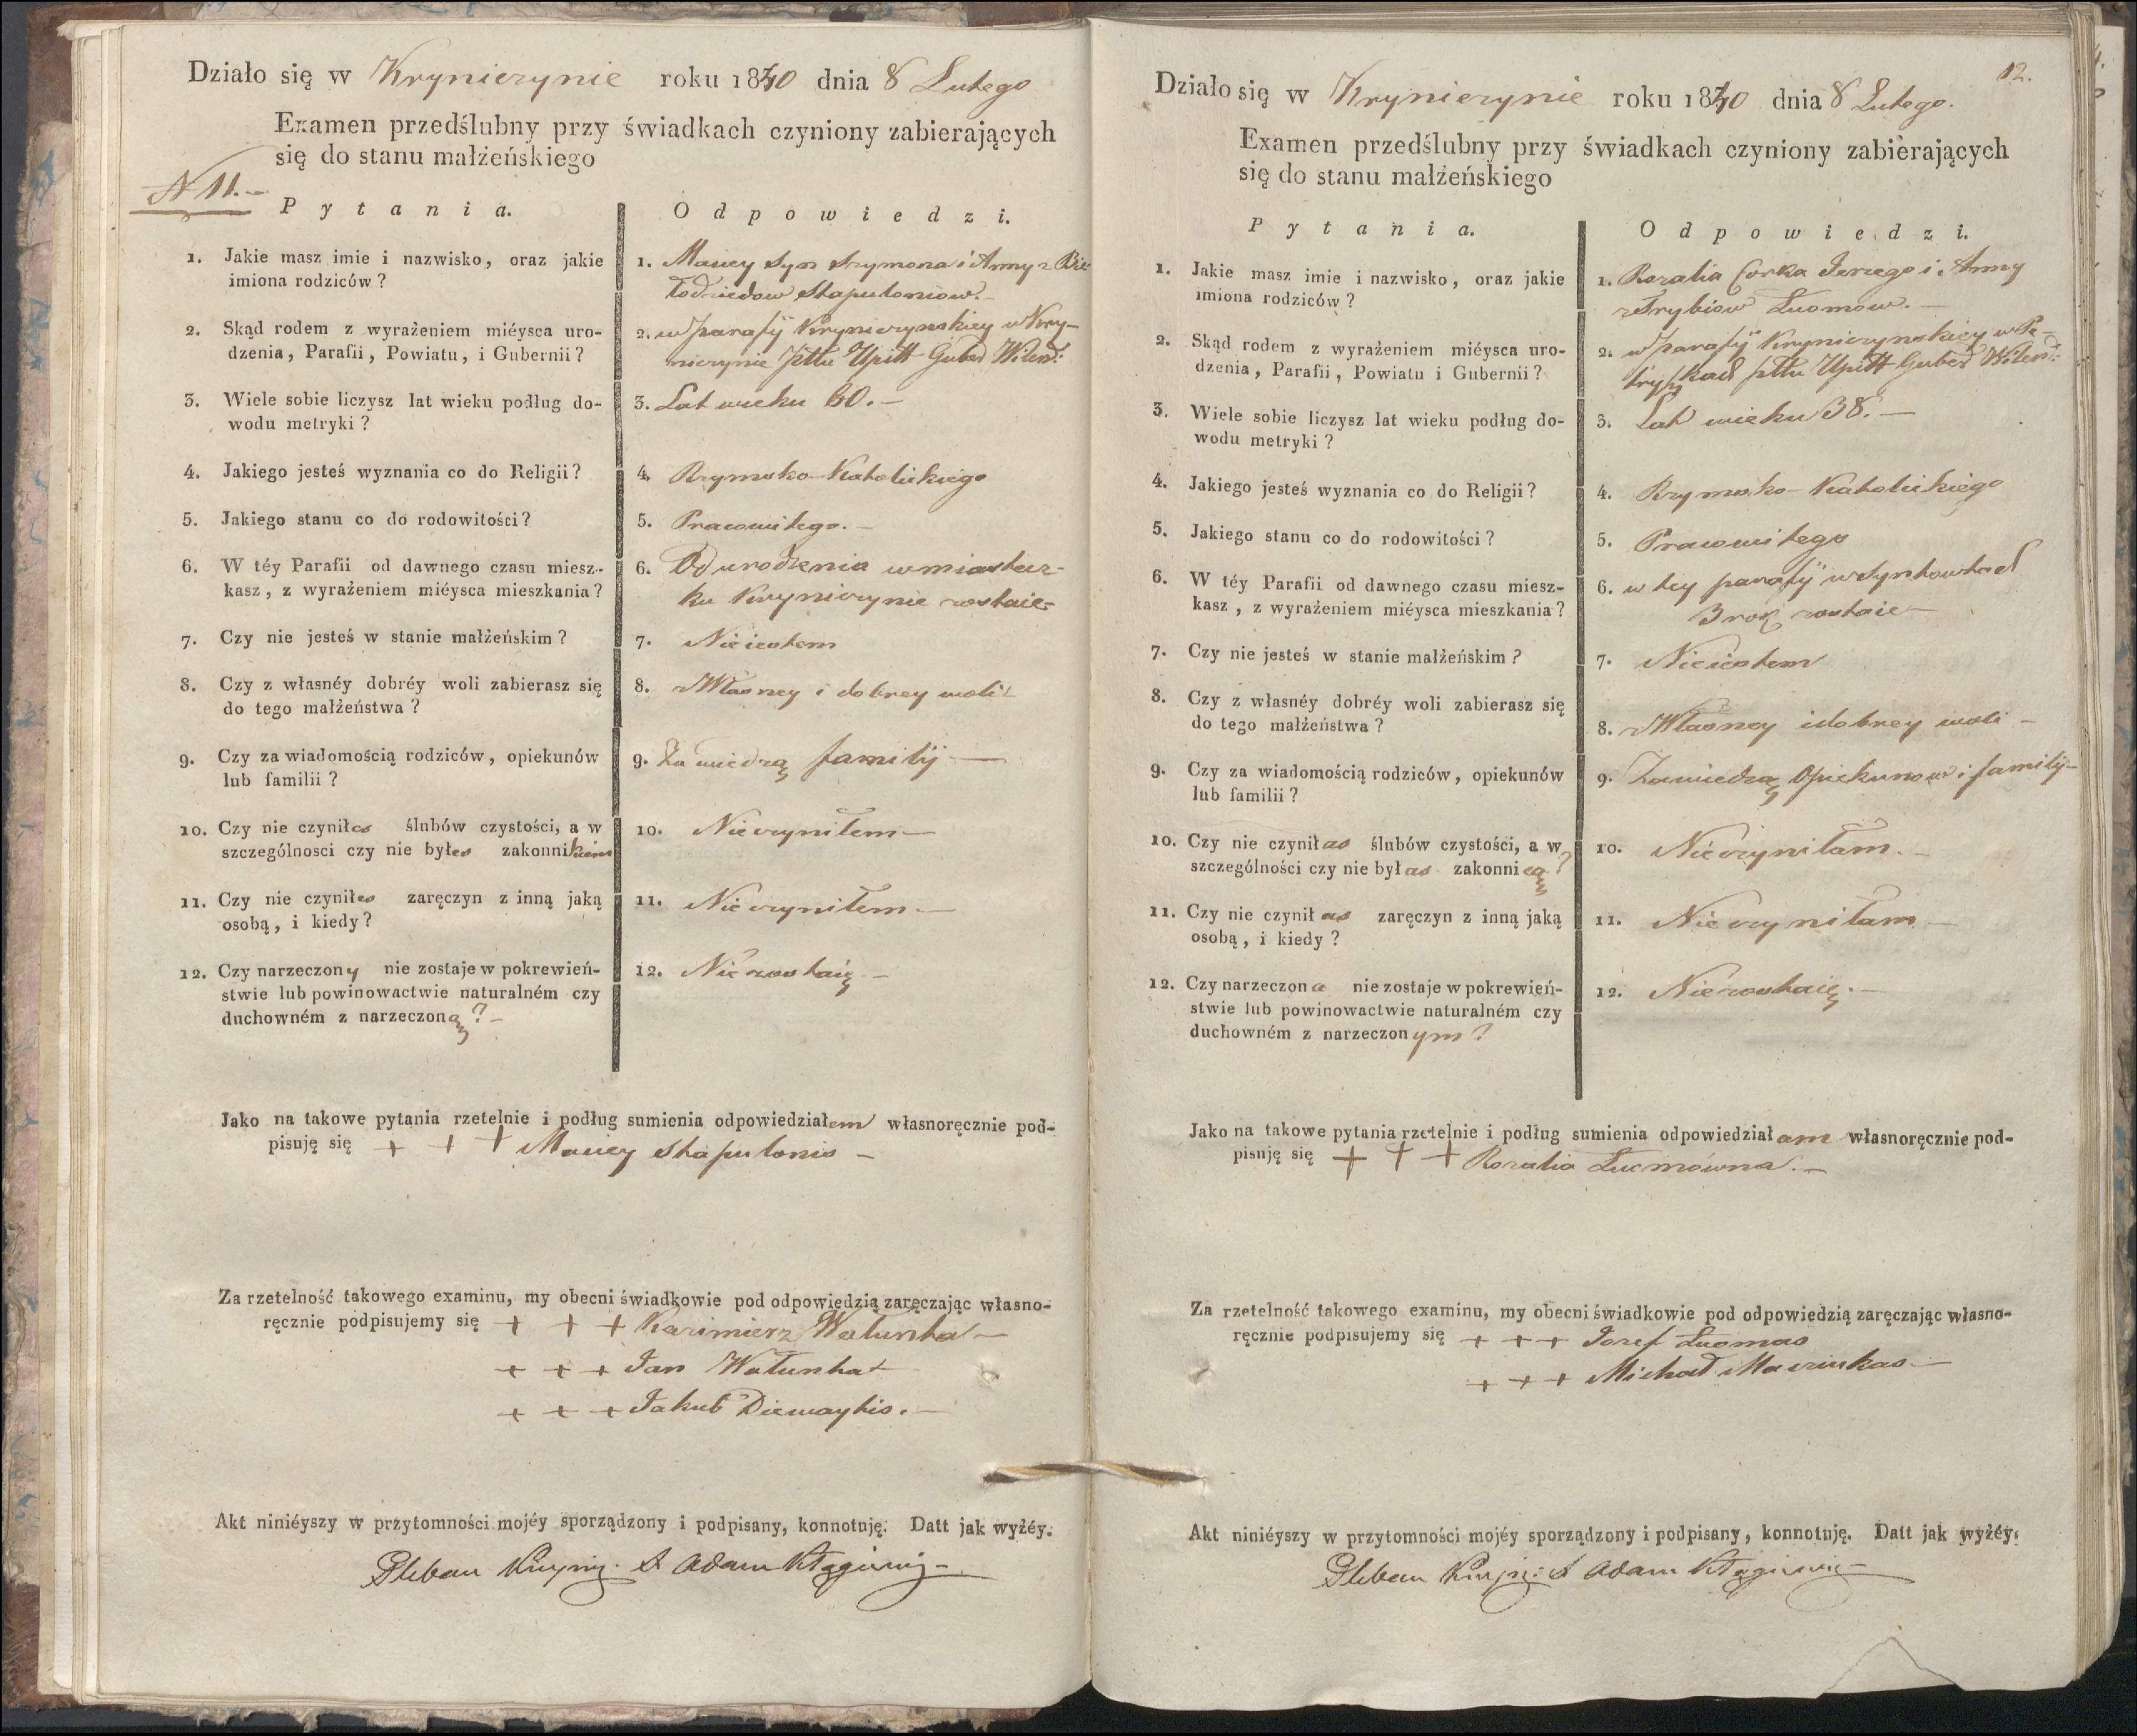 Działo się w Kryniczynie roku 1840 dnia 8 Lutego
Examen przedślubny przy świadkach czyniony zabierających
się do stanu małżeńskiego
N 11.
Pytania.
Odpowiedzi.
1. Jakie masz imie i nazwisko, oraz jakie
imiona rodziców?
1. Maciey syn Szymona i Anny z
Stapuloniow.
2. Skąd rodem z wyrażeniem miéysca uro-
dzenia, Parafii, Powiatu, i Gubernii?
2. w parafij Kryniczynskiey w Kry-
niczynie Pttu Upitt Guber Wilen:
3. Wiele sobie liczysz lat wieku podług do-
wodu metryki?
3. Lat wieku 60.
4. Jakiego jesteś wyznania co do Religii?
4. Rzymsko-Katolickiego
5. Jakiego stanu co do rodowitości?
5. Pracowitego.
6. W téy Parafii od dawnego czasu miesz-
kasz, z wyrażeniem miéysca mieszkania?
6. Od urodzenia w miastecz-
ku Kryniczynie zostaie
7. Czy nie jesteś w stanie małżeńskim?
7. Nieiestem
8. Czy z własnéy dobréy woli zabierasz się
do tego małżeństwa?
8. zWłasney i dobrey woli
9. Czy za wiadomością rodziców, opiekunów
lub familii?
9. Za wiedzą familij
10. Czy nie czyniłes ślubów czystości, a w
szczególnosci czy nie byłes zakonnikiem
10. Nieczyniłem
11. Czy nie czyniłes zaręczyn z inną jaką
osobą, i kiedy?
11. Nieczyniłem
12. Czy narzeczony nie zostaje w pokrewień-
stwie lub powinowactwie naturalném czy
duchowném z narzeczoną?
12. Niezostaię
Jako na takowe pytania rzetelnie i podług sumienia odpowiedziałem własnoręcznie pod-
pisuję się + + + Maciey Stapulonis
Za rzetelność takowego examinu, my obecni świadkowie pod odpowiedzią zaręczając własno-
ręcznie podpisujemy się + + + Kazimierz Watunka
+ + + Jan Watunka
+ + + Jakub Diewaytis.
Akt niniéyszy w przytomności mojéy sporządzony i podpisany, konnotuję. Datt jak wyżéy.
Pleban X Adam
12.
Działo się w Kryniczynie roku 1840 dnia 8 Lutego.
Examen przedślubny przy świadkach czyniony zabierających
się do stanu małżeńskiego
Pytania.
Odpowiedzi.
1. Jakie masz imie i nazwisko, oraz jakie
imiona rodziców?
1. Rozalia Corka Jerzego i Anny
Lucmow.
2. Skąd rodem z wyrażeniem miéysca uro-
dzenia, Parafii, Powiatu i Gubernii?
2. w parafij Kryniczynskiey w Pe-
Pttu Upitt Guber Wilen:
3. Wiele sobie liczysz lat wieku podług do-
wodu metryki?
3. Lat wieku 38.
4. Jakiego jesteś wyznania co do Religii?
4. Rzymsko-Katolickiego
5. Jakiego stanu co do rodowitości?
5. Pracowitego
6. W téy Parafii od dawnego czasu miesz-
kasz, z wyrażeniem miéysca mieszkania?
6. w tey parafij
3 rok zostaie
7. Czy nie jesteś w stanie małżeńskim?
7. Nieiestem
8. Czy z własnéy dobréy woli zabierasz się
do tego małżeństwa?
8. zWłasney idobrey woli
9. Czy za wiadomością rodziców, opiekunów
lub familii?
9. Zawiedzą Opiekunow i familij
10. Czy nie czyniłas ślubów czystości, a w
szczególności czy nie byłas zakonnicą?
10. Nieczyniłam.
11. Czy nie czyniłas zaręczyn z inną jaką
osobą, i kiedy?
11. Nieczyniłam
12. Czy narzeczona nie zostaje w pokrewień-
stwie lub powinowactwie naturalném czy
duchowném z narzeczonym?
12. Niezostaię.
Jako na takowe pytania rzetelnie i podług sumienia odpowiedziałam własnoręcznie pod-
pisuję się + + + Rozalia Lucmówna.
Za rzetelność takowego examinu, my obecni świadkowie pod odpowiedzią zaręczając własno-
ręcznie podpisujemy się + + + Jozef Lucmas
+ + + Michał Macziukas
Akt niniéyszy w przytomności mojéy sporządzony i podpisany, konnotuję. Datt jak wyżéy.
Pleban X Adam